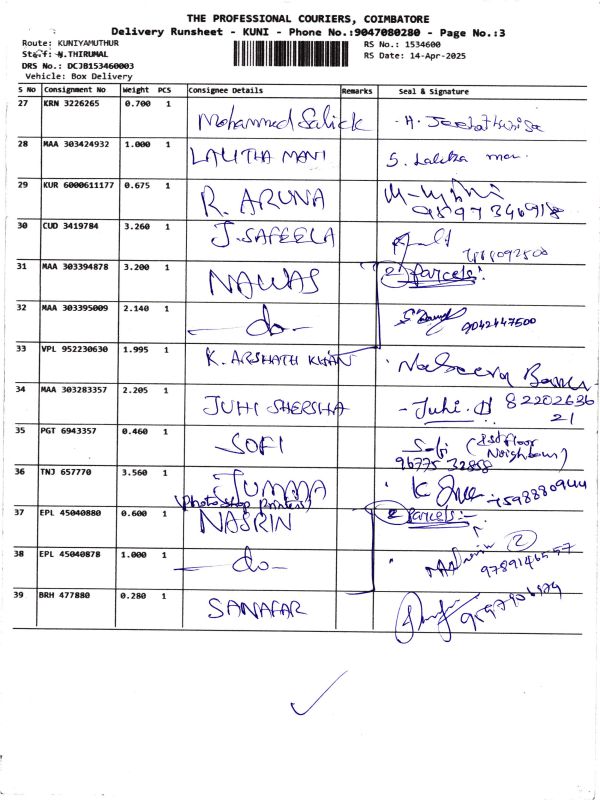 THE PROFESSIONAL COURIERS, COIMBATORE
Delivery Runsheet - KUNI - Phone No.:9047080280 - Page No.:3
Route: KUNIYAMUTHUR RS No.: 1534600
Staff: N.THIRUMAL RS Date: 14-Apr-2025
DRS No.: DCJB153460003
Vehicle: Box Delivery
S No Consignment No Weight PCS Consignee Details Remarks Seal & Signature
27 KRN 3226265 0.700 1 Mohammed Salick
28 MAA 303424932 1.000 1 LALITHA MANI S. Lalitha mani
29 KUR 6000611177 0.675 1 R. ARUNA
9597346918
30 CUD 3419784 3.260 1 J. SAFEELA
31 MAA 303394878 3.200 1 NAWAS 2 parcels:
32 MAA 303395009 2.140 1 —do— 9042447500
33 VPL 952230630 1.995 1 K. ARSHATH KHAN Nabeera Banu
34 MAA 303283357 2.205 1 JUHI SHERSHA - Juhi. 82202636
21
35 PGT 6943357 0.460 1 SOFI Sofi (1st floor Neighbour)
96775 32858
36 TNJ 657770 3.560 1 JUMMA K 7598880944
(Photoshop printers)
37 EPL 45040880 0.600 1 NASRIN 2 parcels:-
38 EPL 45040878 1.000 1 —do— 2
9789146557
39 BRH 477880 0.280 1 SANAFAR